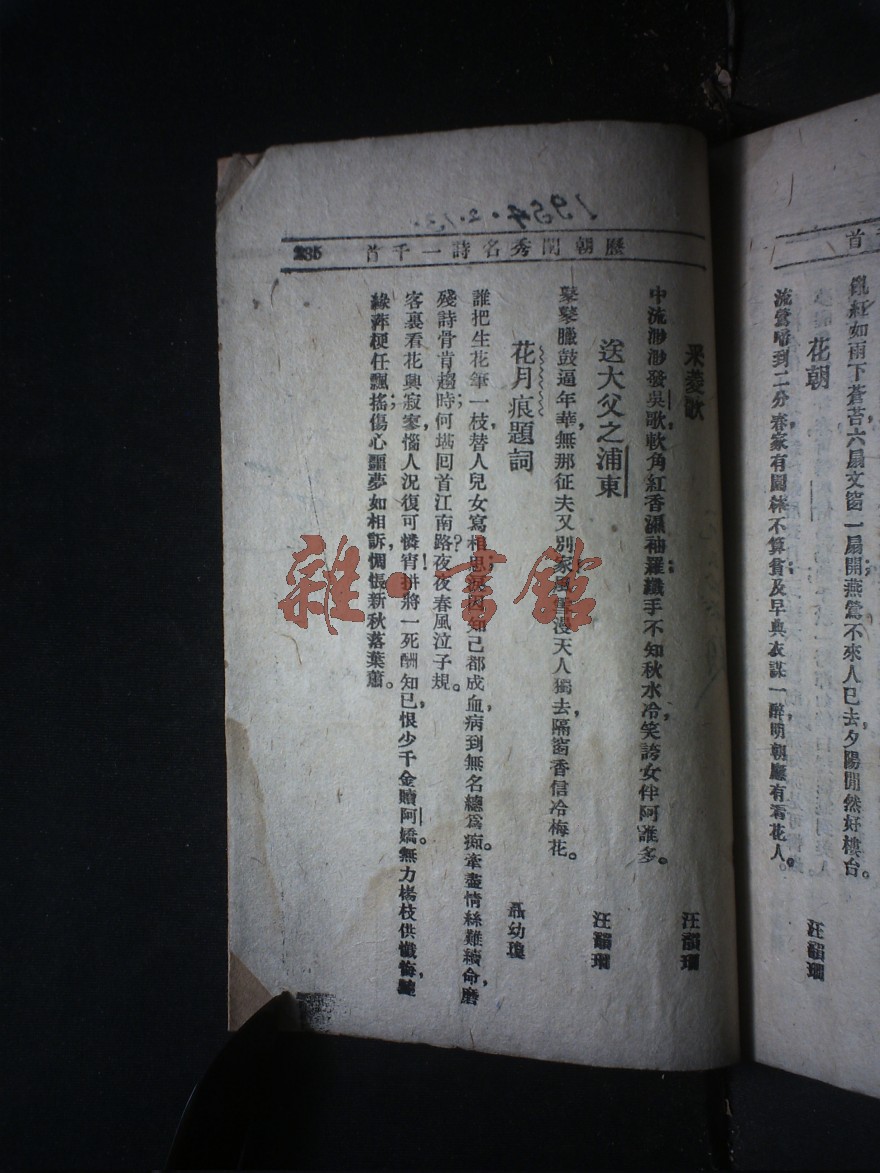 亂紅如雨下蒼苔，六扇文窗一扇開；燕鶯不來人已去，夕陽閒然好樓台。
花朝
汪韻珊
流鶯啼到二分春，家有園林不算貧；及早典衣謀一醉，明朝廳有賣花人。
首
歷朝閨秀名詩一千首
235
1954.2.13.
采菱歌
汪韻珊
中流渺渺發吳歌，軟角紅香濕袖羅；纖手不知秋水冷，笑誇女伴阿誰多。
送大父之浦東
汪韻珊
鼕鼕臘鼓逼年華，無那征夫又別家；風雪漫天人獨去，隔窗香信冷梅花。
花月痕題詞
聶幼瓊
誰把生花筆一枝，替人兒女寫相思；淚因知己都成血，病到無名總為痴。牽盡情絲難續命，磨
殘詩骨肯趨時；何堪回首江南路？夜夜春風泣子規。
客裏看花興寂寥，惱人況復可憐宵！拼將一死酬知己，恨少千金贖阿嬌。無力楊枝供懺悔，
綠萍梗任飄搖；傷心噩夢如相訴，惆悵新秋落葉蕭。
雜·書館